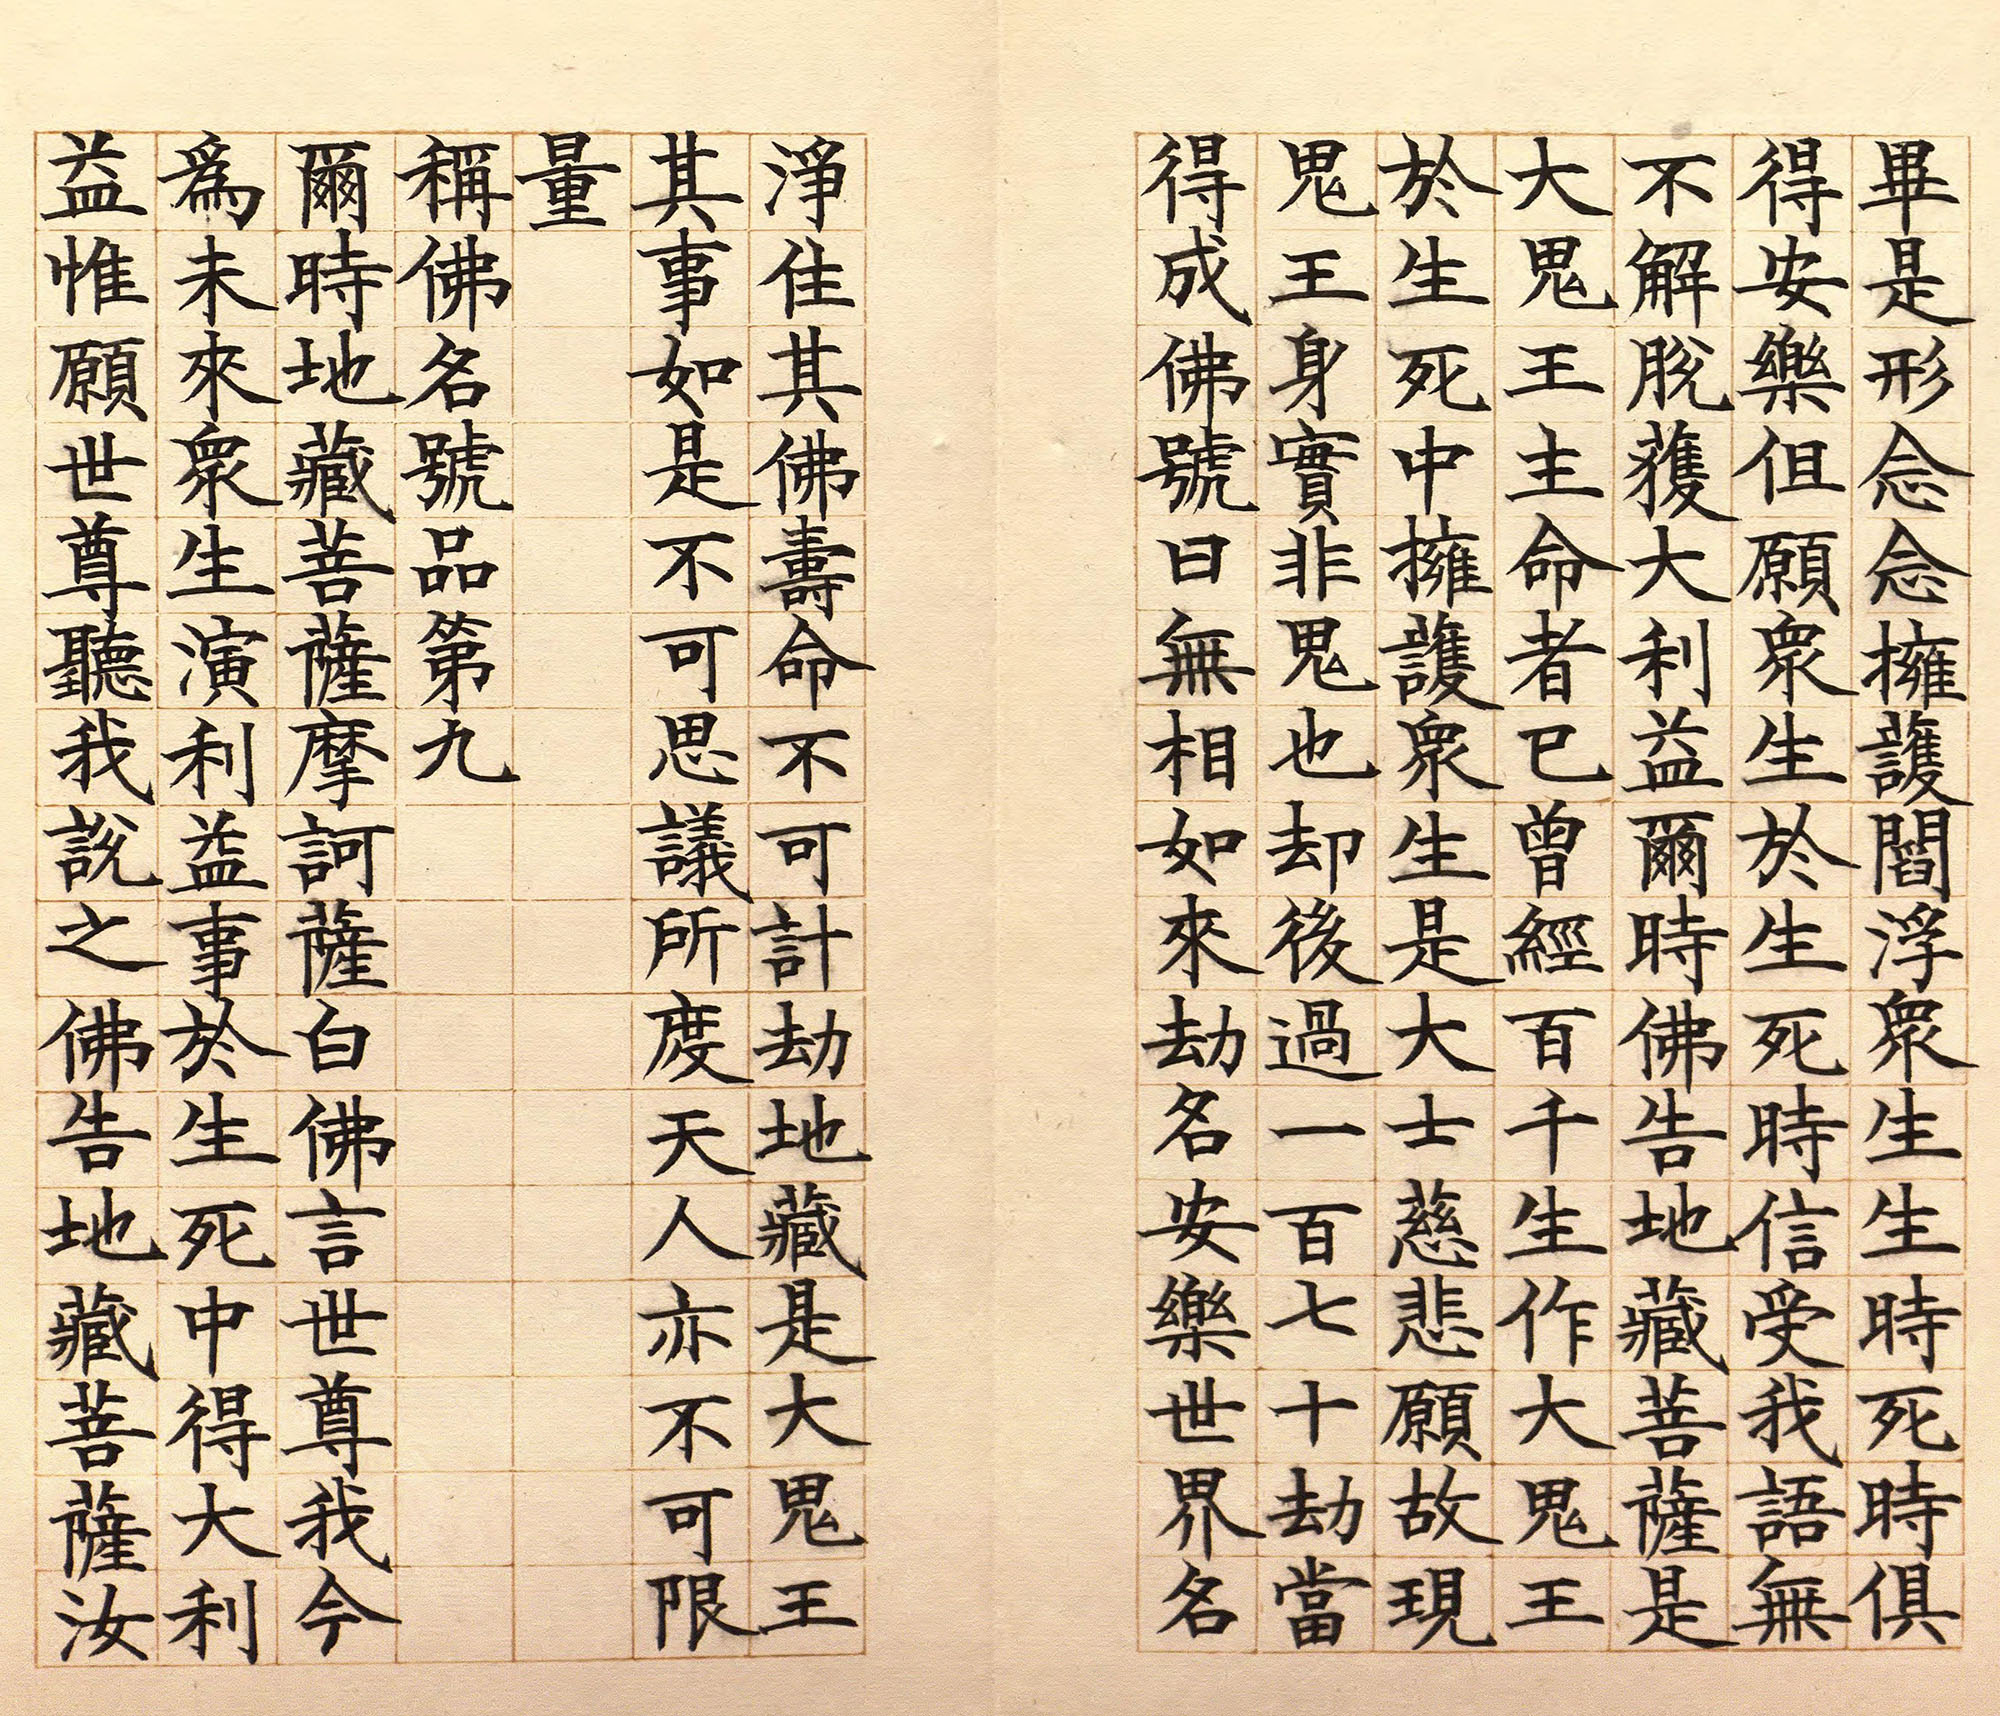 畢是形念念擁護閻浮衆生生時死時俱
得安樂但願衆生於生死時信受我語無
不解脫獲大利益爾時佛告地藏菩薩是
大鬼王主命者已曾經百千生作大鬼王
於生死中擁護衆生是大士慈悲願故現
鬼王身實非鬼也却後過一百七十劫當
得成佛號曰無相如來劫名安樂世界名
淨住其佛壽命不可計劫地藏是大鬼王
其事如是不可思議所度天人亦不可限
量
稱佛名號品第九
爾時地藏菩薩摩訶薩白佛言世尊我今
爲未來衆生演利益事於生死中得大利
益惟願世尊聽我說之佛告地藏菩薩汝